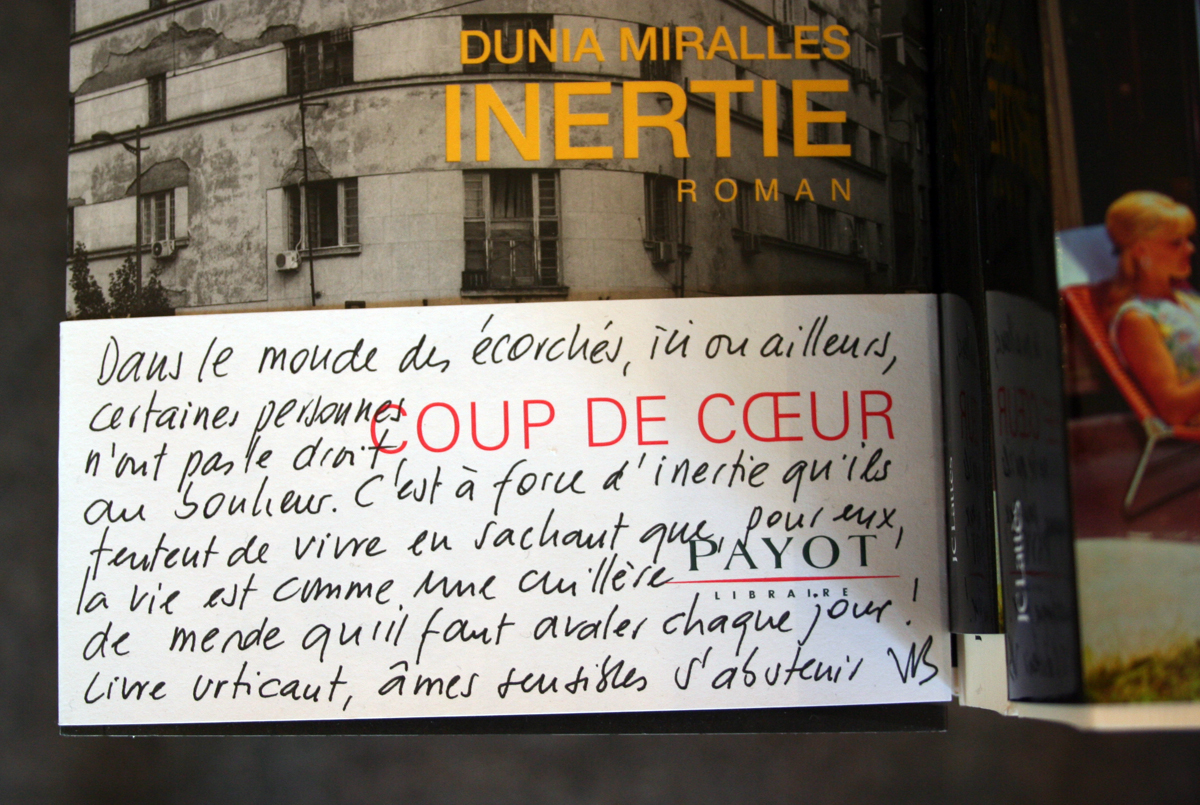 DUNIA MIRALLES
INERTIE
ROMAN
Dans le monde des écorchés, ici ou ailleurs,
certaines personnes
COUP DE CŒUR
n'ont pas le droit,
au bonheur. C'est à force d'inertie qu'ils
tentent de vivre en sachant que, pour eux,
PAYOT
LIBRAIRE
la vie est comme une cuillère
de merde qu'il faut avaler chaque jour !
Livre urticant, âmes sensibles s'abstenir VB
JC Lattès
JC Lattès